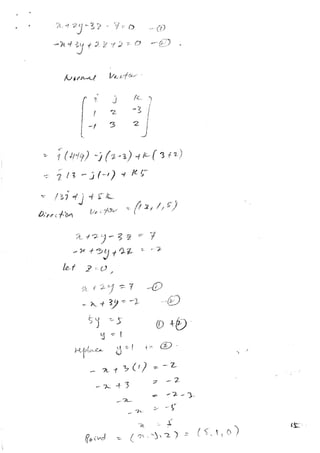 x + 2y - 3z - 7 = 0 - ①
-x + 3y + 2z + 2 = 0 - ②.
Normal Vector
i j k
1 2 -3
-1 3 2
= i (4+9) - j (2-3) + k (3+2)
= i 13 - j (-1) + k 5
= 13i + j + 5k
Direction Vector = (13, 1, 5)
x + 2y - 3z = 7
-x + 3y + 2z = -2
let z = 0,
x + 2y = 7 - ①
-x + 3y = -2 - ②
5y = 5 ① + ②
y = 1
replace y = 1 in ②.
-x + 3(1) = -2
-x + 3 = -2
-x = -2 - 3
-x = -5
x = 5
Point = (x, y, z) = (5, 1, 0)
15